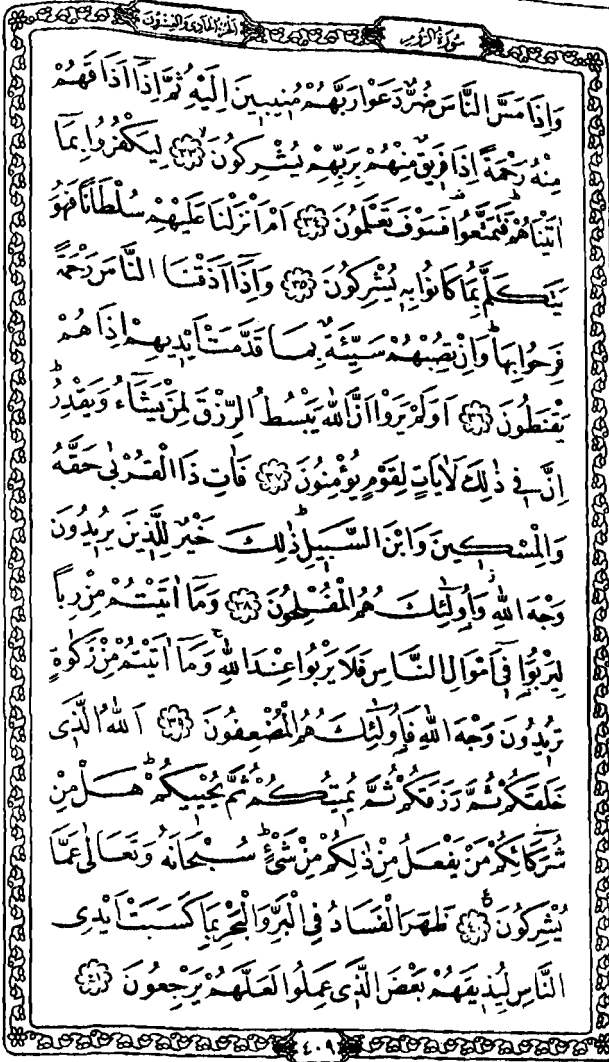 سُورَةُ الرُّومِ
اَلْجُزْءُ الْحَادِي وَالْعِشْرُونَ
وَاِذَا مَسَّ النَّاسَ ضُرٌّ دَعَوْا رَبَّهُمْ مُنِيبِينَ اِلَيْهِ ثُمَّ اِذَٓا اَذَاقَهُمْ
مِنْهُ رَحْمَةً اِذَا فَرِيقٌ مِنْهُمْ بِرَبِّهِمْ يُشْرِكُونَ ﴿٣٣﴾ لِيَكْفُرُوا بِمَٓا
اٰتَيْنَاهُمْ فَتَمَتَّعُوا فَسَوْفَ تَعْلَمُونَ ﴿٣٤﴾ اَمْ اَنْزَلْنَا عَلَيْهِمْ سُلْطَانًا فَهُوَ
يَتَكَلَّمُ بِمَا كَانُوا بِهِ يُشْرِكُونَ ﴿٣٥﴾ وَاِذَٓا اَذَقْنَا النَّاسَ رَحْمَةً
فَرِحُوا بِهَا وَاِنْ تُصِبْهُمْ سَيِّئَةٌ بِمَا قَدَّمَتْ اَيْدِيهِمْ اِذَا هُمْ
يَقْنَطُونَ ﴿٣٦﴾ اَوَلَمْ يَرَوْا اَنَّ اللّٰهَ يَبْسُطُ الرِّزْقَ لِمَنْ يَشَٓاءُ وَيَقْدِرُ
اِنَّ فِي ذٰلِكَ لَاٰيَاتٍ لِقَوْمٍ يُؤْمِنُونَ ﴿٣٧﴾ فَاٰتِ ذَا الْقُرْبٰى حَقَّهُ
وَالْمِسْكِينَ وَابْنَ السَّبِيلِ ذٰلِكَ خَيْرٌ لِلَّذِينَ يُرِيدُونَ
وَجْهَ اللّٰهِ وَاُولٰٓئِكَ هُمُ الْمُفْلِحُونَ ﴿٣٨﴾ وَمَٓا اٰتَيْتُمْ مِنْ رِبًا
لِيَرْبُوَا فِٓي اَمْوَالِ النَّاسِ فَلَا يَرْبُوا عِنْدَ اللّٰهِ وَمَٓا اٰتَيْتُمْ مِنْ زَكٰوةٍ
تُرِيدُونَ وَجْهَ اللّٰهِ فَاُولٰٓئِكَ هُمُ الْمُضْعِفُونَ ﴿٣٩﴾ اَللّٰهُ الَّذِي
خَلَقَكُمْ ثُمَّ رَزَقَكُمْ ثُمَّ يُمِيتُكُمْ ثُمَّ يُحْيِيكُمْ هَلْ مِنْ
شُرَكَٓائِكُمْ مَنْ يَفْعَلُ مِنْ ذٰلِكُمْ مِنْ شَيْءٍ سُبْحَانَهُ وَتَعَالٰى عَمَّا
يُشْرِكُونَ ﴿٤٠﴾ ظَهَرَ الْفَسَادُ فِي الْبَرِّ وَالْبَحْرِ بِمَا كَسَبَتْ اَيْدِي
النَّاسِ لِيُذِيقَهُمْ بَعْضَ الَّذِي عَمِلُوا لَعَلَّهُمْ يَرْجِعُونَ ﴿٤١﴾
٤٠٩